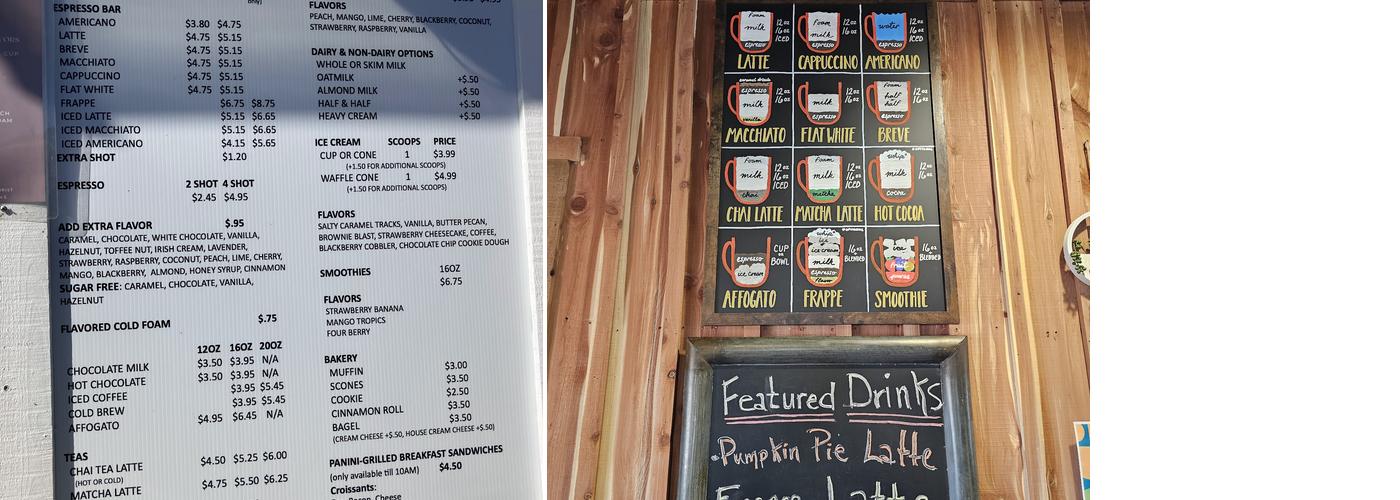 only)
ESPRESSO BAR
AMERICANO $3.80 $4.75
LATTE $4.75 $5.15
BREVE $4.75 $5.15
MACCHIATO $4.75 $5.15
CAPPUCCINO $4.75 $5.15
FLAT WHITE $4.75 $5.15
FRAPPE $6.75 $8.75
ICED LATTE $5.15 $6.65
ICED MACCHIATO $5.15 $6.65
ICED AMERICANO $4.15 $5.65
EXTRA SHOT $1.20
ESPRESSO 2 SHOT 4 SHOT
$2.45 $4.95
ADD EXTRA FLAVOR $.95
CARAMEL, CHOCOLATE, WHITE CHOCOLATE, VANILLA,
HAZELNUT, TOFFEE NUT, IRISH CREAM, LAVENDER,
STRAWBERRY, RASPBERRY, COCONUT, PEACH, LIME, CHERRY,
MANGO, BLACKBERRY, ALMOND, HONEY SYRUP, CINNAMON
SUGAR FREE: CARAMEL, CHOCOLATE, VANILLA,
HAZELNUT
FLAVORED COLD FOAM $.75
12OZ 16OZ 20OZ
CHOCOLATE MILK $3.50 $3.95 N/A
HOT CHOCOLATE $3.50 $3.95 N/A
ICED COFFEE $3.95 $5.45
COLD BREW $3.95 $5.45
AFFOGATO $4.95 $6.45 N/A
TEAS
CHAI TEA LATTE $4.50 $5.25 $6.00
(HOT OR COLD)
MATCHA LATTE $4.75 $5.50 $6.25
FLAVORS
PEACH, MANGO, LIME, CHERRY, BLACKBERRY, COCONUT,
STRAWBERRY, RASPBERRY, VANILLA
DAIRY & NON-DAIRY OPTIONS
WHOLE OR SKIM MILK
OATMILK +$.50
ALMOND MILK +$.50
HALF & HALF +$.50
HEAVY CREAM +$.50
ICE CREAM SCOOPS PRICE
CUP OR CONE 1 $3.99
(+1.50 FOR ADDITIONAL SCOOPS)
WAFFLE CONE 1 $4.99
(+1.50 FOR ADDITIONAL SCOOPS)
FLAVORS
SALTY CARAMEL TRACKS, VANILLA, BUTTER PECAN,
BROWNIE BLAST, STRAWBERRY CHEESECAKE, COFFEE,
BLACKBERRY COBBLER, CHOCOLATE CHIP COOKIE DOUGH
SMOOTHIES 16OZ
$6.75
FLAVORS
STRAWBERRY BANANA
MANGO TROPICS
FOUR BERRY
BAKERY
MUFFIN $3.00
SCONES $3.50
COOKIE $2.50
CINNAMON ROLL $3.50
BAGEL $3.50
(CREAM CHEESE +$.50, HOUSE CREAM CHEESE +$.50)
PANINI-GRILLED BREAKFAST SANDWICHES
(only available till 10AM) $4.50
Croissants:
Foam
milk
espresso
12 oz
16 oz
ICED
LATTE
Foam
milk
espresso
12 oz
16 oz
CAPPUCCINO
water
espresso
12 oz
16 oz
ICED
AMERICANO
caramel drizzle
espresso
milk
vanilla
12 oz
16 oz
MACCHIATO
milk
espresso
12 oz
16 oz
FLAT WHITE
Foam
half
half
espresso
12 oz
16 oz
BREVE
Foam
milk
chai
12 oz
16 oz
ICED
CHAI LATTE
Foam
milk
matcha
12 oz
16 oz
ICED
MATCHA LATTE
whip
milk
cocoa
12 oz
16 oz
HOT COCOA
espresso
ice cream
CUP
OR
BOWL
AFFOGATO
whip
ice
ice cream
milk
espresso
flavor
16 oz
BLENDED
FRAPPE
ice
16 oz
BLENDED
SMOOTHIE
Featured Drinks
Pumpkin Pie Latte